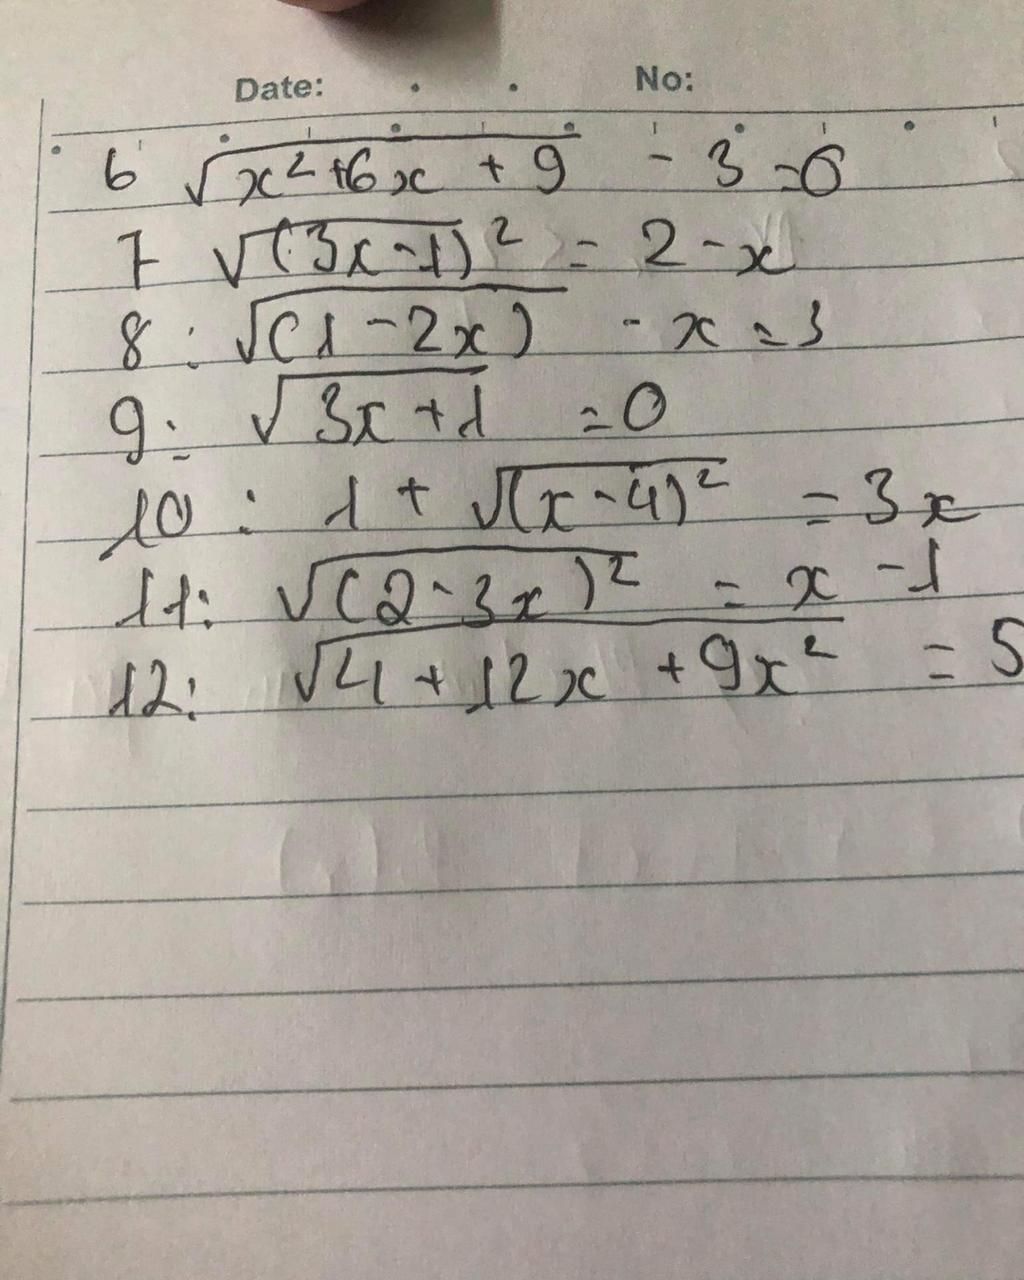 Date: No:
6 √(x²+6x + 9) - 3 = 0
7 √(3x-1)² = 2 - x
8 : √(1 - 2x) - x = 3
9: √3x+1 = 0
10 : 1 + √(x-4)² = 3x
11: √(2-3x)² = x - 1
12: √4 + 12x + 9x² = 5